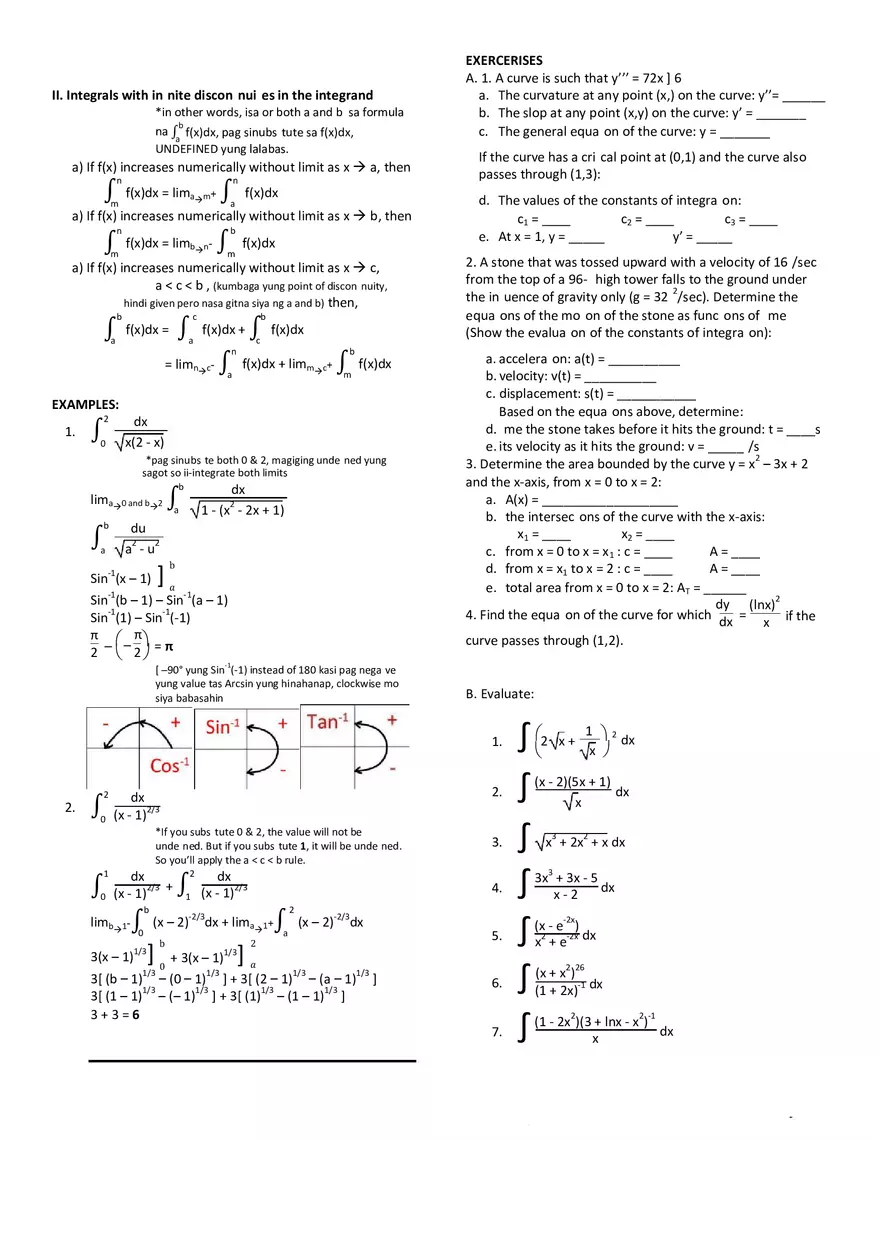 II. Integrals with in nite discon nui es in the integrand
*in other words, isa or both a and b sa formula
na ∫ₐᵇ f(x)dx, pag sinubs tute sa f(x)dx,
UNDEFINED yung lalabas.
a) If f(x) increases numerically without limit as x → a, then
∫ₘⁿ f(x)dx = lim a→m+ ∫ₐⁿ f(x)dx
a) If f(x) increases numerically without limit as x → b, then
∫ₘⁿ f(x)dx = lim b→n- ∫ₘᵇ f(x)dx
a) If f(x) increases numerically without limit as x → c,
a < c < b , (kumbaga yung point of discon nuity,
hindi given pero nasa gitna siya ng a and b) then,
∫ₐᵇ f(x)dx = ∫ₐᶜ f(x)dx + ∫_c^b f(x)dx
= lim n→c- ∫ₐⁿ f(x)dx + lim m→c+ ∫ₘᵇ f(x)dx
EXAMPLES:
1. ∫₀² dx / √x(2 - x)
*pag sinubs te both 0 & 2, magiging unde ned yung
sagot so ii-integrate both limits
lim a→0 and b→2 ∫ₐᵇ dx / √1 - (x² - 2x + 1)
∫ₐᵇ du / √a² - u²
Sin⁻¹(x – 1) ] b a
Sin⁻¹(b – 1) – Sin⁻¹(a – 1)
Sin⁻¹(1) – Sin⁻¹(-1)
π/2 – (– π/2) = π
[ –90° yung Sin⁻¹(-1) instead of 180 kasi pag nega ve
yung value tas Arcsin yung hinahanap, clockwise mo
siya babasahin
- + Cos⁻¹
Sin⁻¹ + -
Tan⁻¹ + -
2. ∫₀² dx / (x - 1)^2/3
*If you subs tute 0 & 2, the value will not be
unde ned. But if you subs tute 1, it will be unde ned.
So you’ll apply the a < c < b rule.
∫₀¹ dx / (x - 1)^2/3 + ∫₁² dx / (x - 1)^2/3
lim b→1- ∫₀ᵇ (x – 2)^-2/3 dx + lim a→1+ ∫ₐ² (x – 2)^-2/3 dx
3(x – 1)^1/3 ] b 0 + 3(x – 1)^1/3 ] 2 a
3[ (b – 1)^1/3 – (0 – 1)^1/3 ] + 3[ (2 – 1)^1/3 – (a – 1)^1/3 ]
3[ (1 – 1)^1/3 – (– 1)^1/3 ] + 3[ (1)^1/3 – (1 – 1)^1/3 ]
3 + 3 = 6
EXERCERISES
A. 1. A curve is such that y’’’ = 72x ] 6
a. The curvature at any point (x,) on the curve: y’’= ______
b. The slop at any point (x,y) on the curve: y’ = _______
c. The general equa on of the curve: y = _______
If the curve has a cri cal point at (0,1) and the curve also
passes through (1,3):
d. The values of the constants of integra on:
c₁ = ____ c₂ = ____ c₃ = ____
e. At x = 1, y = _____ y’ = _____
2. A stone that was tossed upward with a velocity of 16 /sec
from the top of a 96- high tower falls to the ground under
the in uence of gravity only (g = 32 ²/sec). Determine the
equa ons of the mo on of the stone as func ons of me
(Show the evalua on of the constants of integra on):
a. accelera on: a(t) = __________
b. velocity: v(t) = __________
c. displacement: s(t) = ___________
Based on the equa ons above, determine:
d. me the stone takes before it hits the ground: t = ____s
e. its velocity as it hits the ground: v = _____ /s
3. Determine the area bounded by the curve y = x² – 3x + 2
and the x-axis, from x = 0 to x = 2:
a. A(x) = ___________________
b. the intersec ons of the curve with the x-axis:
x₁ = ____ x₂ = ____
c. from x = 0 to x = x₁ : c = ____ A = ____
d. from x = x₁ to x = 2 : c = ____ A = ____
e. total area from x = 0 to x = 2: A_T = ______
4. Find the equa on of the curve for which dy/dx = (lnx)²/x if the
curve passes through (1,2).
B. Evaluate:
1. ∫ (2√x + 1/√x)² dx
2. ∫ (x - 2)(5x + 1) / √x dx
3. ∫ √x³ + 2x² + x dx
4. ∫ 3x³ + 3x - 5 / x - 2 dx
5. ∫ (x - e^-2x) / x² + e^-2x dx
6. ∫ (x + x²)^26 / (1 + 2x)^-1 dx
7. ∫ (1 - 2x²)(3 + lnx - x²)^-1 / x dx